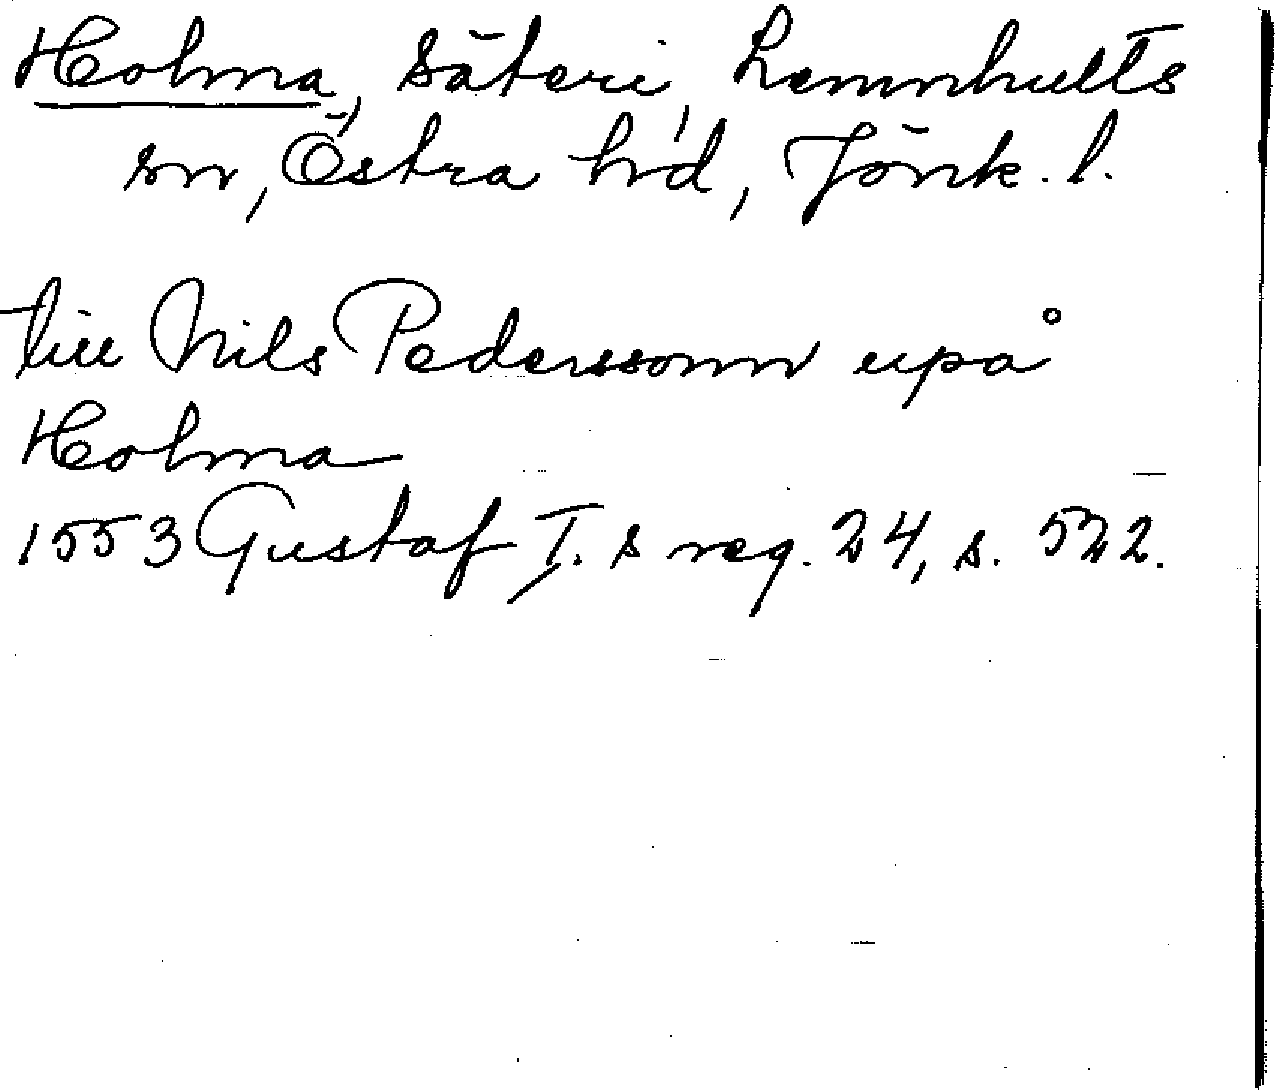 Holma, säteri, Lemnhults
sn, Östra hd, Jönk. l.
till Nils Pederssonn upå
Holma
1553 Gustaf I. s reg. 24, s. 522.